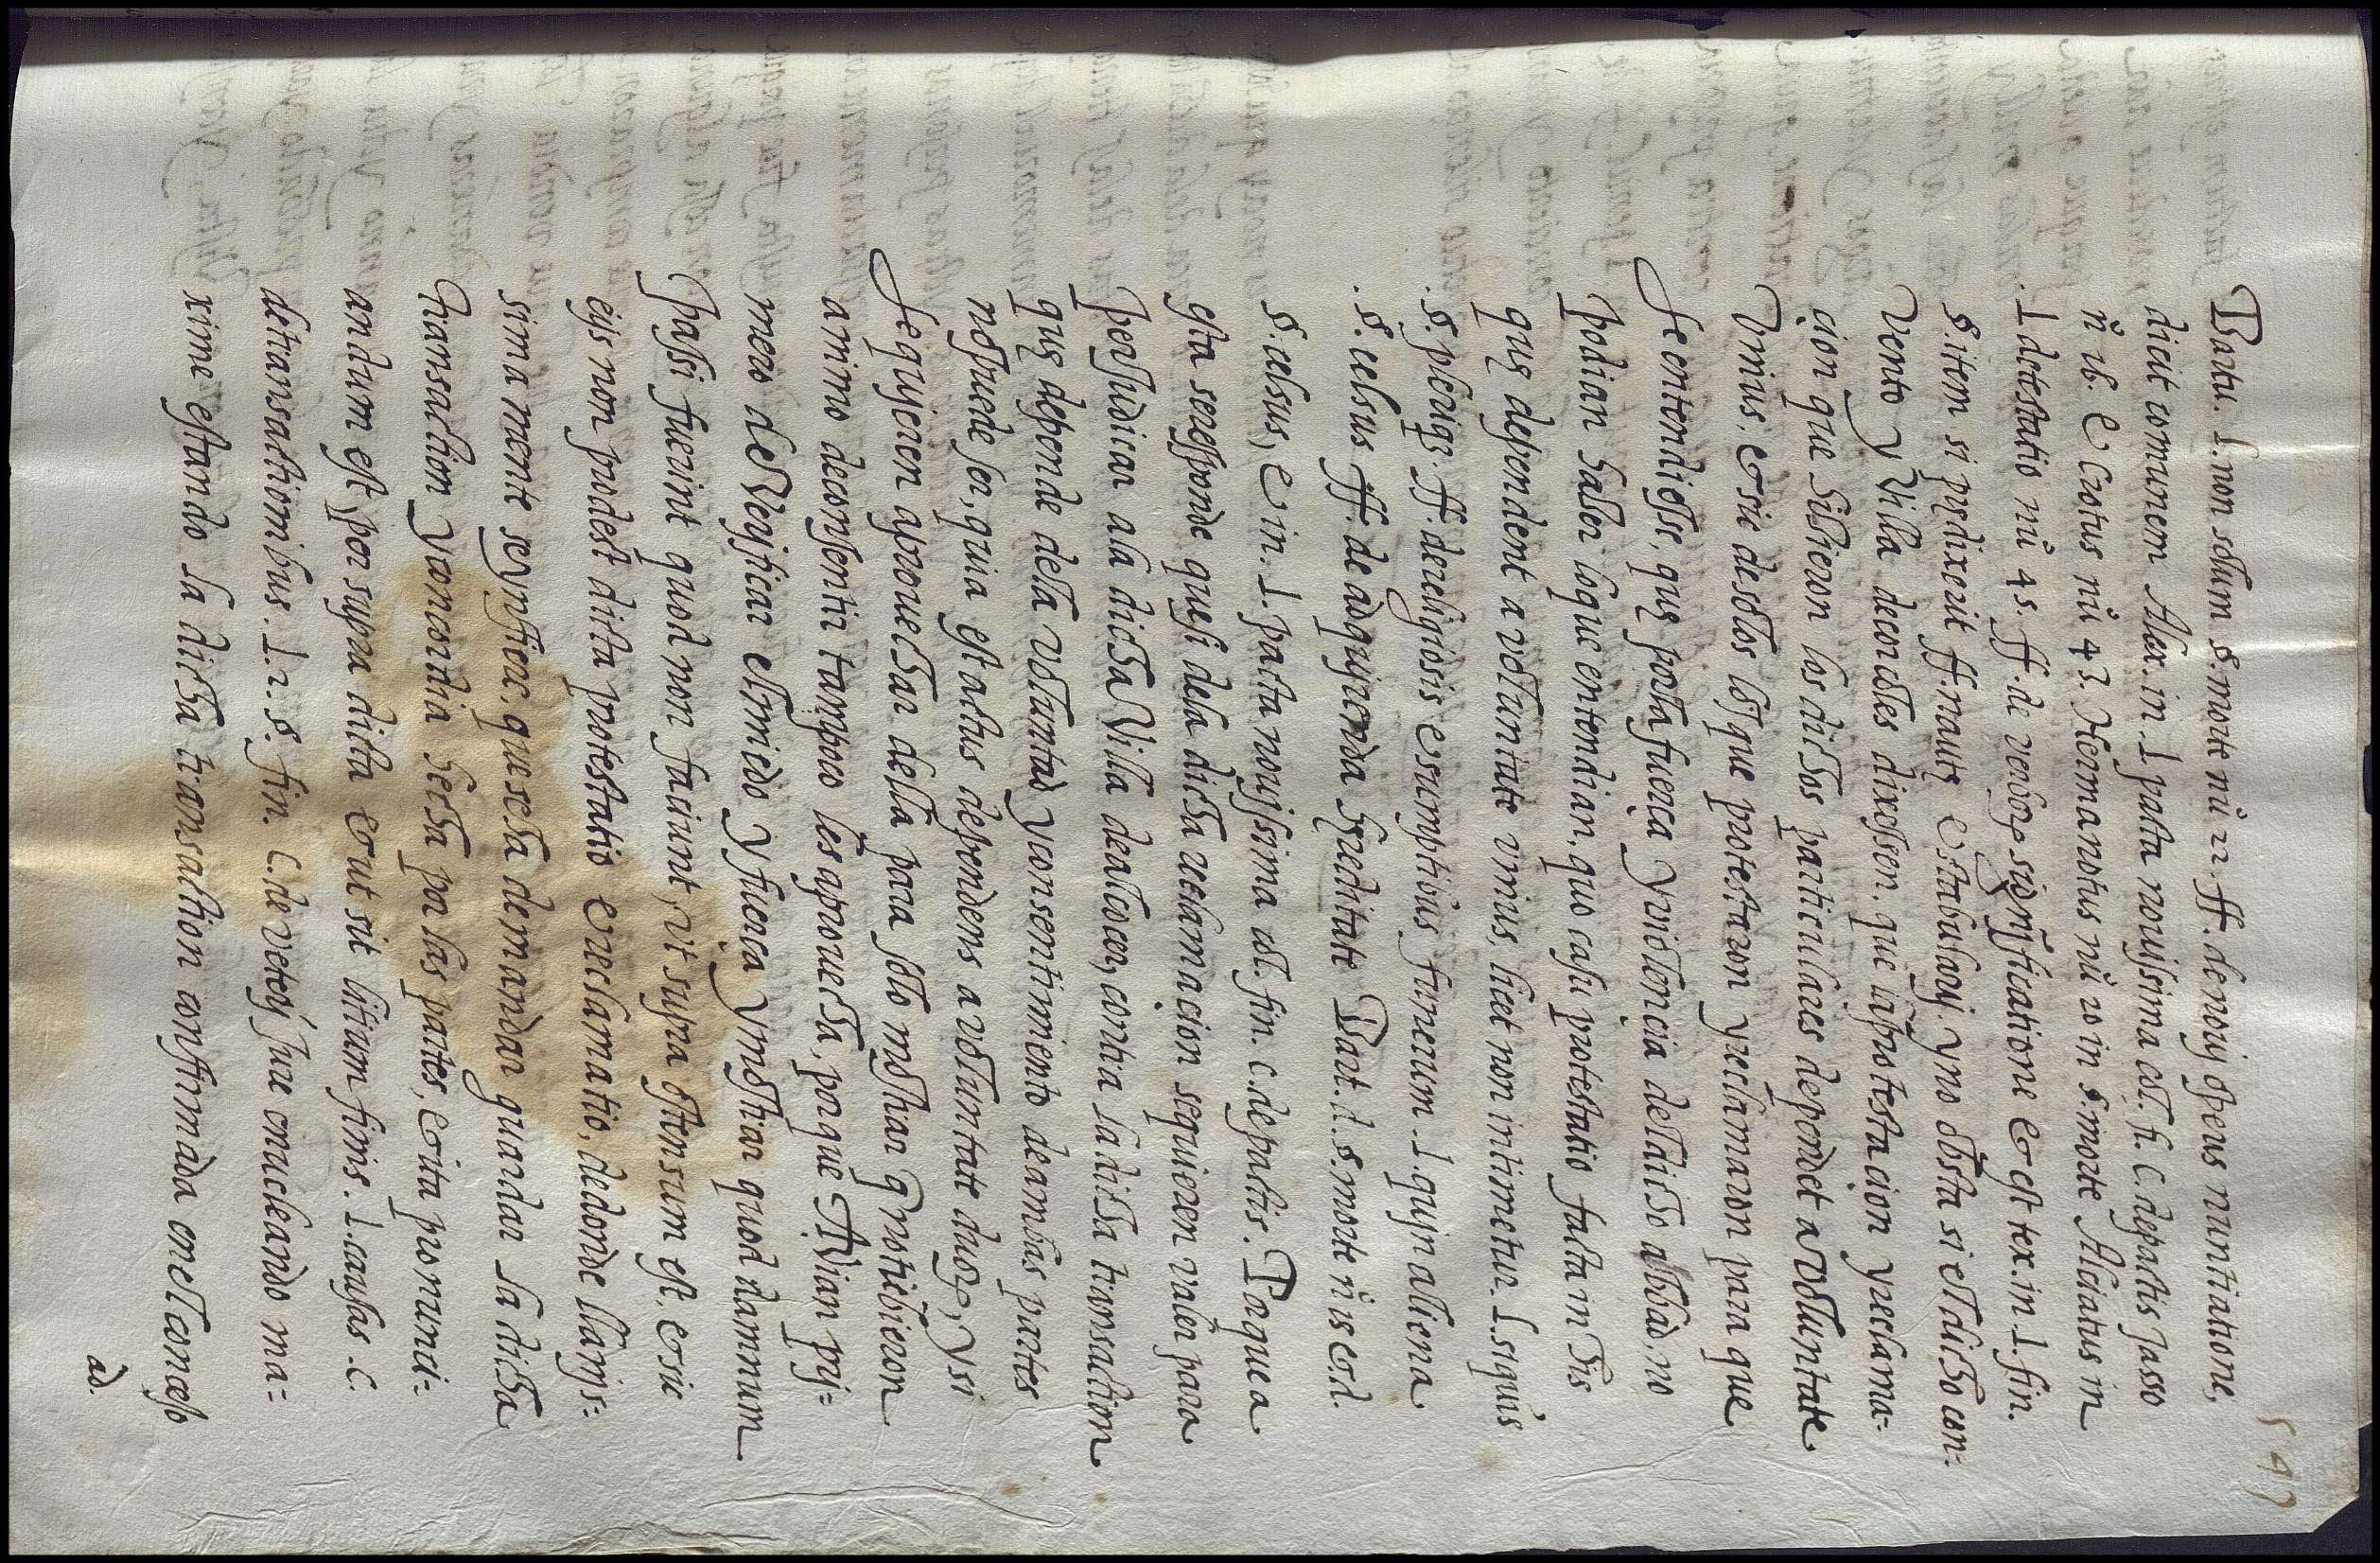 593
Bartu. l. non solum §. morte nu 22. ff. de novj operis nuntiatione,
dicit comunem Alex. in l. pacta novissima col. fi. C. de pactis Jasso
nu 16. e Crotus nu 43. Hermanotus nu 20 in §. morte Alciatus in
l. detestatio nu 45. ff. de verbor. significatione & est tex. in l. fin.
§. item si predixerit ff. nautę e stabularj. y no obsta si el dicho con-
vento y Villa de condes dixessen, que la protestacion y reclama-
çion que hizieron los dichos particulares dependet a voluntate
vnius. & sic de solos los que protestaron y reclamaron para que
se entendiesse, que por la fuerça y violençia del dicho abbad. no
podian hazer lo que entendian. quo casu protestatio facta in his
quę dependent a voluntate vnius, licet non intimetur. l. si quis
§. plerique. ff. de religiosis e sumptibus funerum. l. qui in aliena
§. celsus ff. de adquirenda hęreditate Bart. d. §. morte nu 15 & d.
§. celsus, e in. l. pacta novissima col. fin. C. de pactis. Porque a
esto se responde que si de la dicha reclamaçion se quieren valer para
perjudicar a la dicha Villa de alcocer, contra la dicha transaction
quę depende de la voluntad y consentimiento de ambas partes
no puede ser, quia est actus dependens a voluntate duor. y si
se quieren aprouechar della para solo mostrar q no tubieron
animo de consentir tampoco les aprouecha, porque Avian pri-
mero de verificar el miedo y fuerça y mostrar quod damnum
passi fuerint quod non faciunt, vt supra ostensum est. & sic
eis non podest dicta protestatio e reclamatio. de donde llanys-
simamente se ynfiere, que se ha de mandar guardar la dicha
transaction y concordia hecha por las partes, & ita pornunci-
andum est per supra dicta & ut sit litium finis. l. causas. C.
de transactionibus. l. 2. §. fin. C. de veterj Jure enucleando ma-
xime estando la dicha transaction confirmada en el consejo
ad.